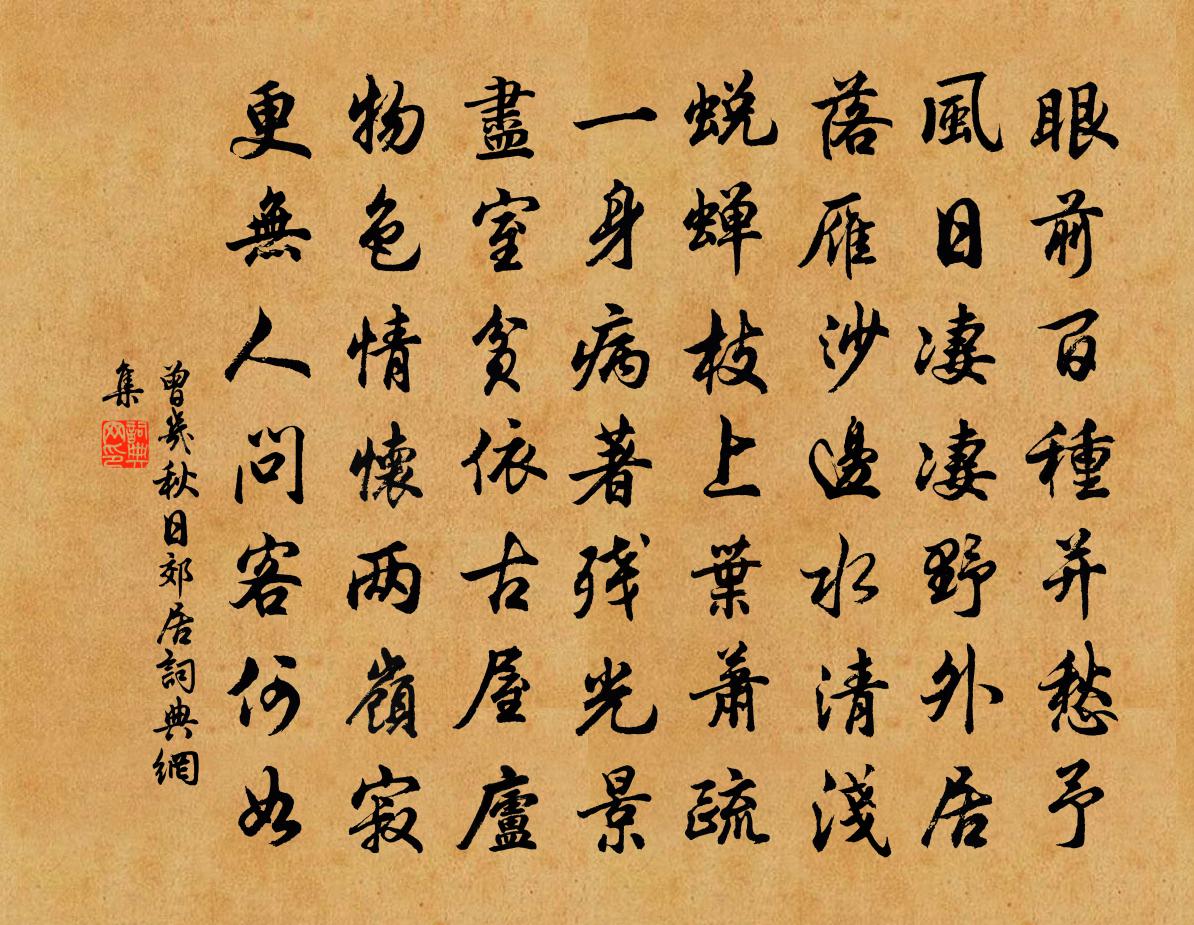 眼前百種并愁予
風日凄凄野外居
落雁沙邊水清淺
蜕蝉枝上葉蕭疏
一身病著残光景
盡室貧依古屋廬
物色情懷两嶺寂
更無人問客何如
曾幾秋日郊居詞典網
集
詞典
网印